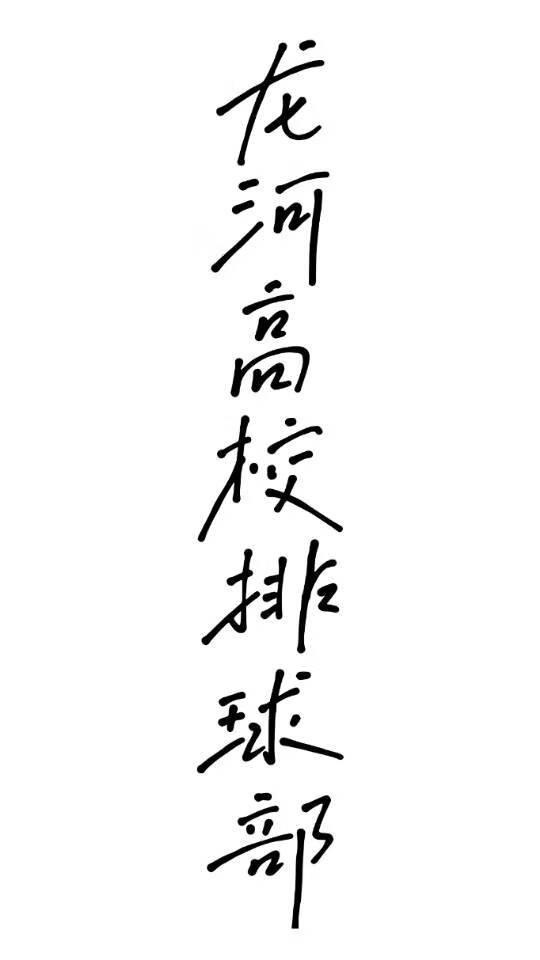 龙河高校排球部